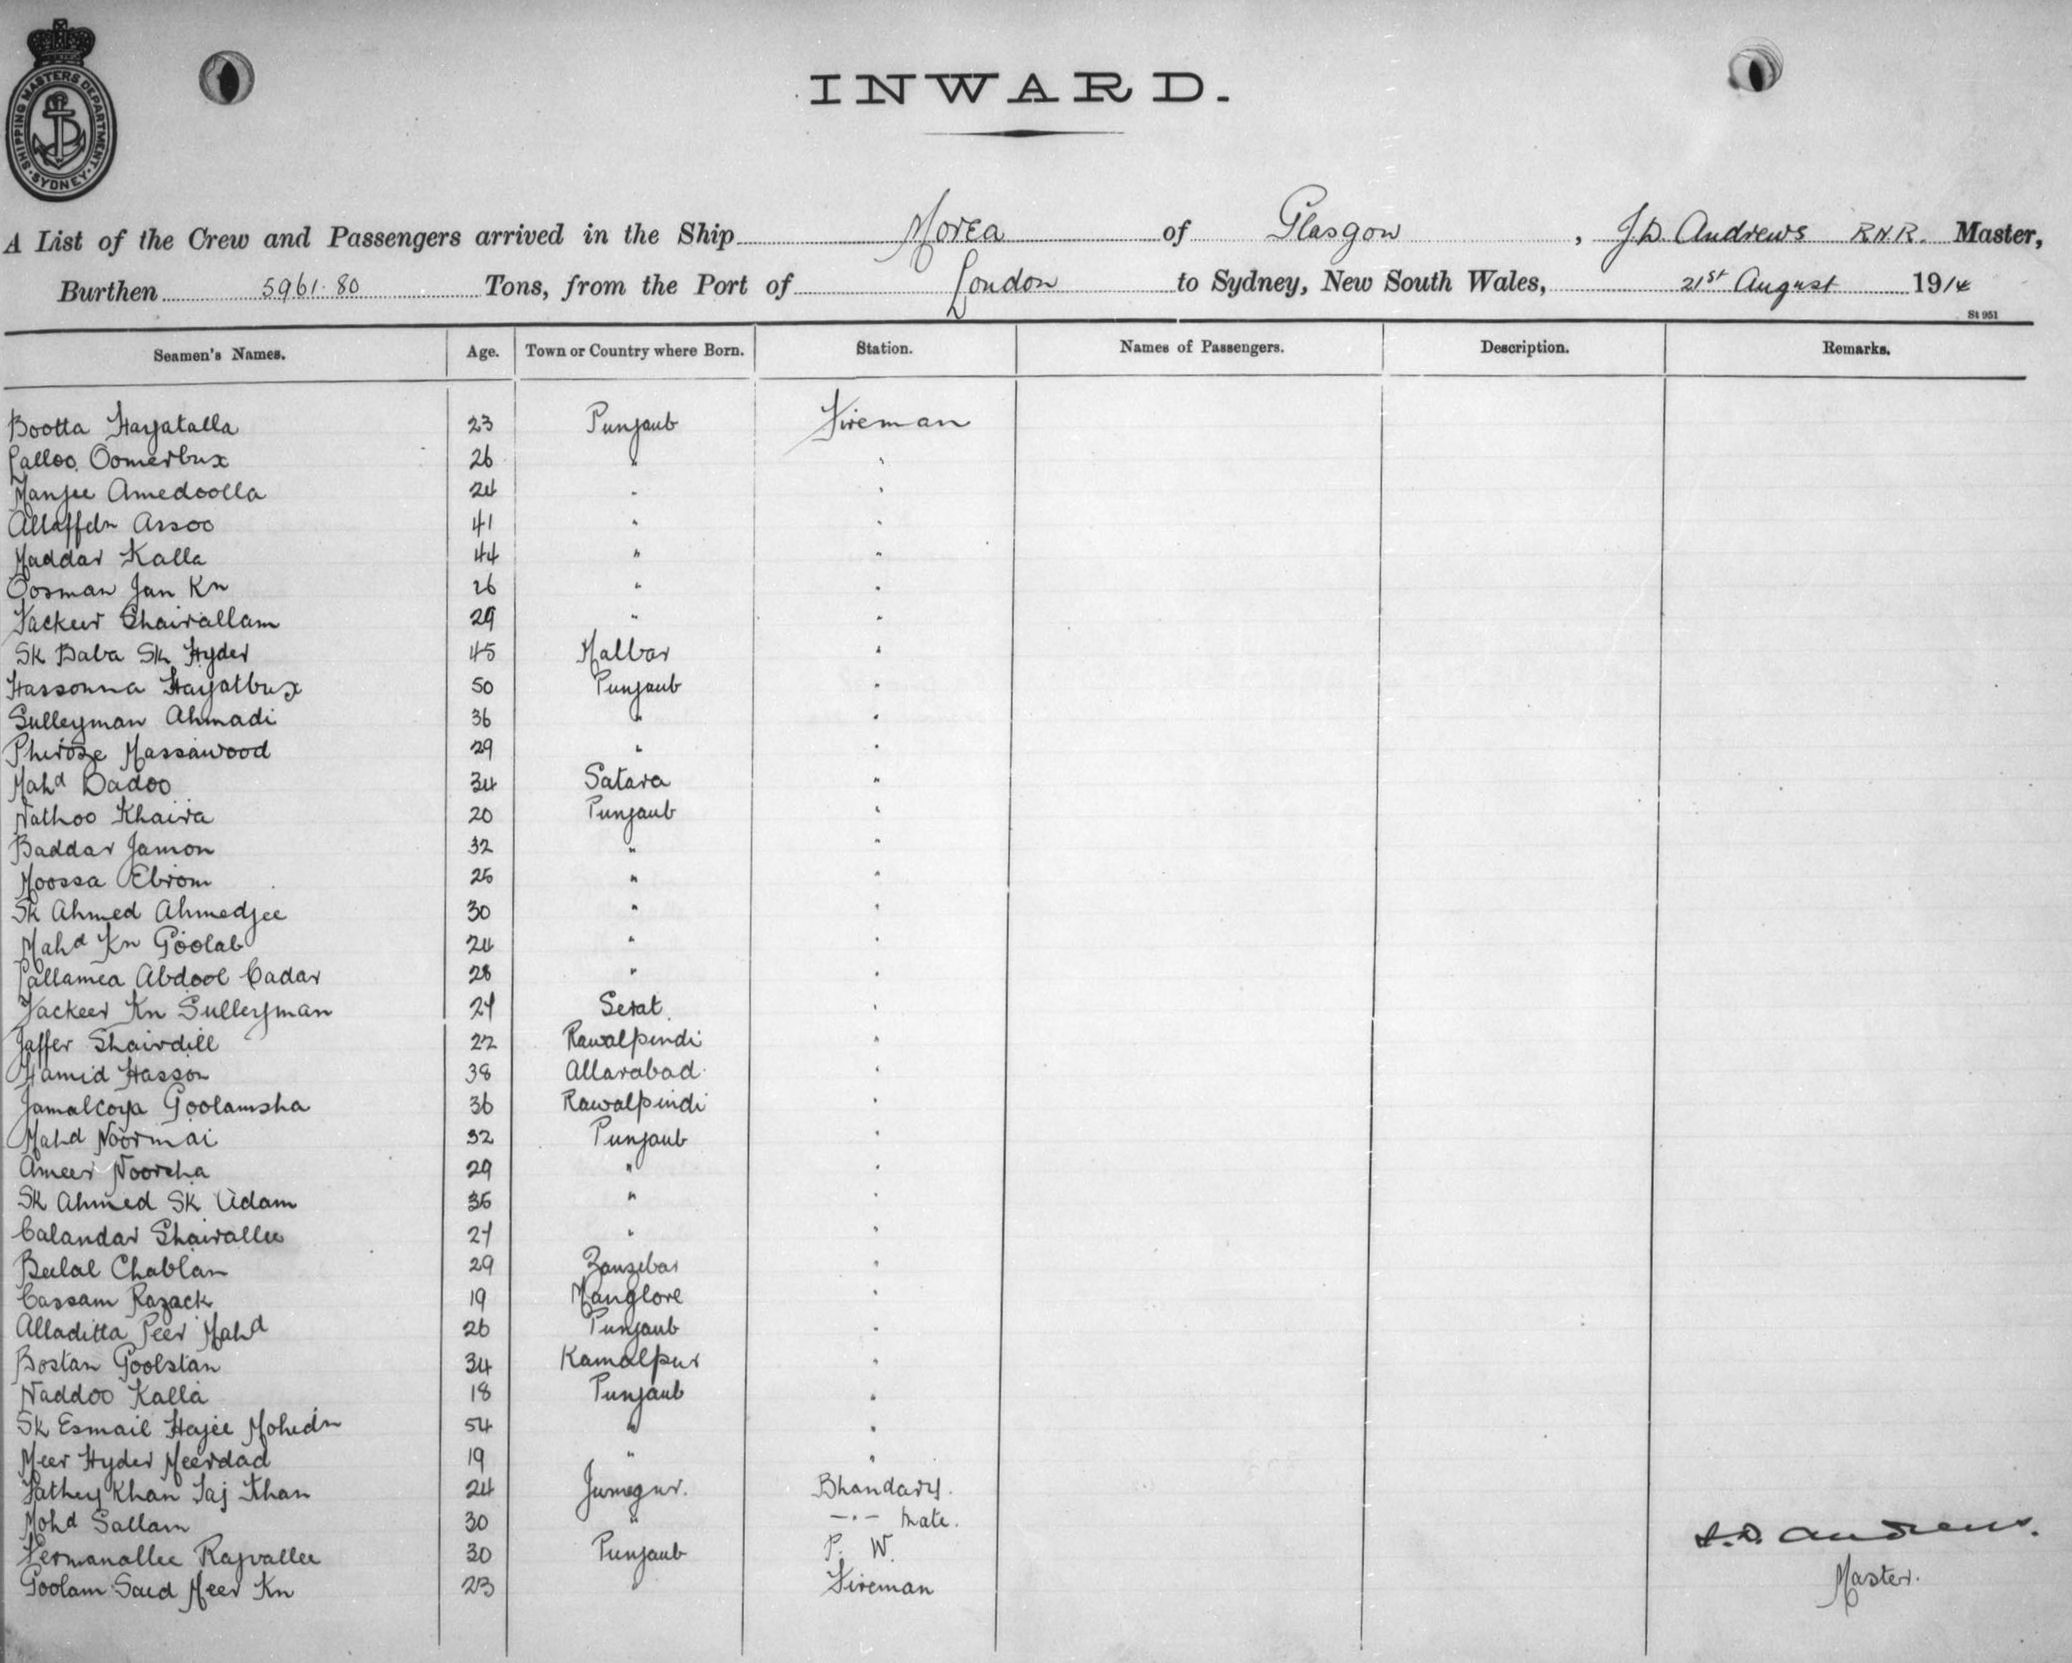 SHIPPING MASTERS DEPARTMENT. SYDNEY.
INWARD.
A List of the Crew and Passengers arrived in the Ship Morea of Glasgow, J.D. Andrews R.N.R. Master,
Burthen 5961.80 Tons, from the Port of London to Sydney, New South Wales, 21st August 1914
St 951
Seamen's Names. Age. Town or Country where Born. Station. Names of Passengers. Description. Remarks.
Bootta Hayatalla 23 Punjaub Fireman
Lalloo Oomerbux 26 " "
Manjee Amedoolla 24 " "
Allaffdn Assoo 41 " "
Maddar Kalla 44 " "
Oosman Jan Kn 26 " "
Fackeer Shairallam 29 " "
Sk Baba Sk Hyder 45 Malbar "
Hassonna Hayatbux 50 Punjaub "
Sulleyman Ahmadi 36 " "
Pheroze Massawood 29 " "
Mahd Dadoo 34 Satara "
Nathoo Khaira 20 Punjaub "
Baddar Jamon 32 " "
Moossa Ebrom 25 " "
Sk Ahmed Ahmedjee 30 " "
Mahd Kn Goolab 24 " "
Pallamea Abdool Cadar 28 " "
Fackeer Kn Sulleyman 21 Serat "
Jaffer Shairdill 22 Rawalpindi "
Hamid Hasson 38 Allarabad "
Jamalcoya Goolamsha 36 Rawalpindi "
Mahd Noormai 32 Punjaub "
Ameer Noorsha 29 " "
Sk Ahmed Sk Adam 35 " "
Calandar Shairallee 21 " "
Belal Chablan 29 Zanzebar "
Cassam Razack 19 Manglore "
Alladitta Peer Mahd 26 Punjaub "
Bostan Goolstan 34 Kamalpur "
Naddoo Kalla 18 Punjaub "
Sk Esmail Hajee Mohedn 54 " "
Meer Hyder Meerdad 19 " "
Fathey Khan Taj Khan 24 Jumegur. Bhandary.
Mohd Sallam 30 " —"— Mate.
Fermanallee Rajvallee 30 Punjaub P. W.
Goolam Said Meer Kn 23 " Fireman
J.D. Andrews.
Master.